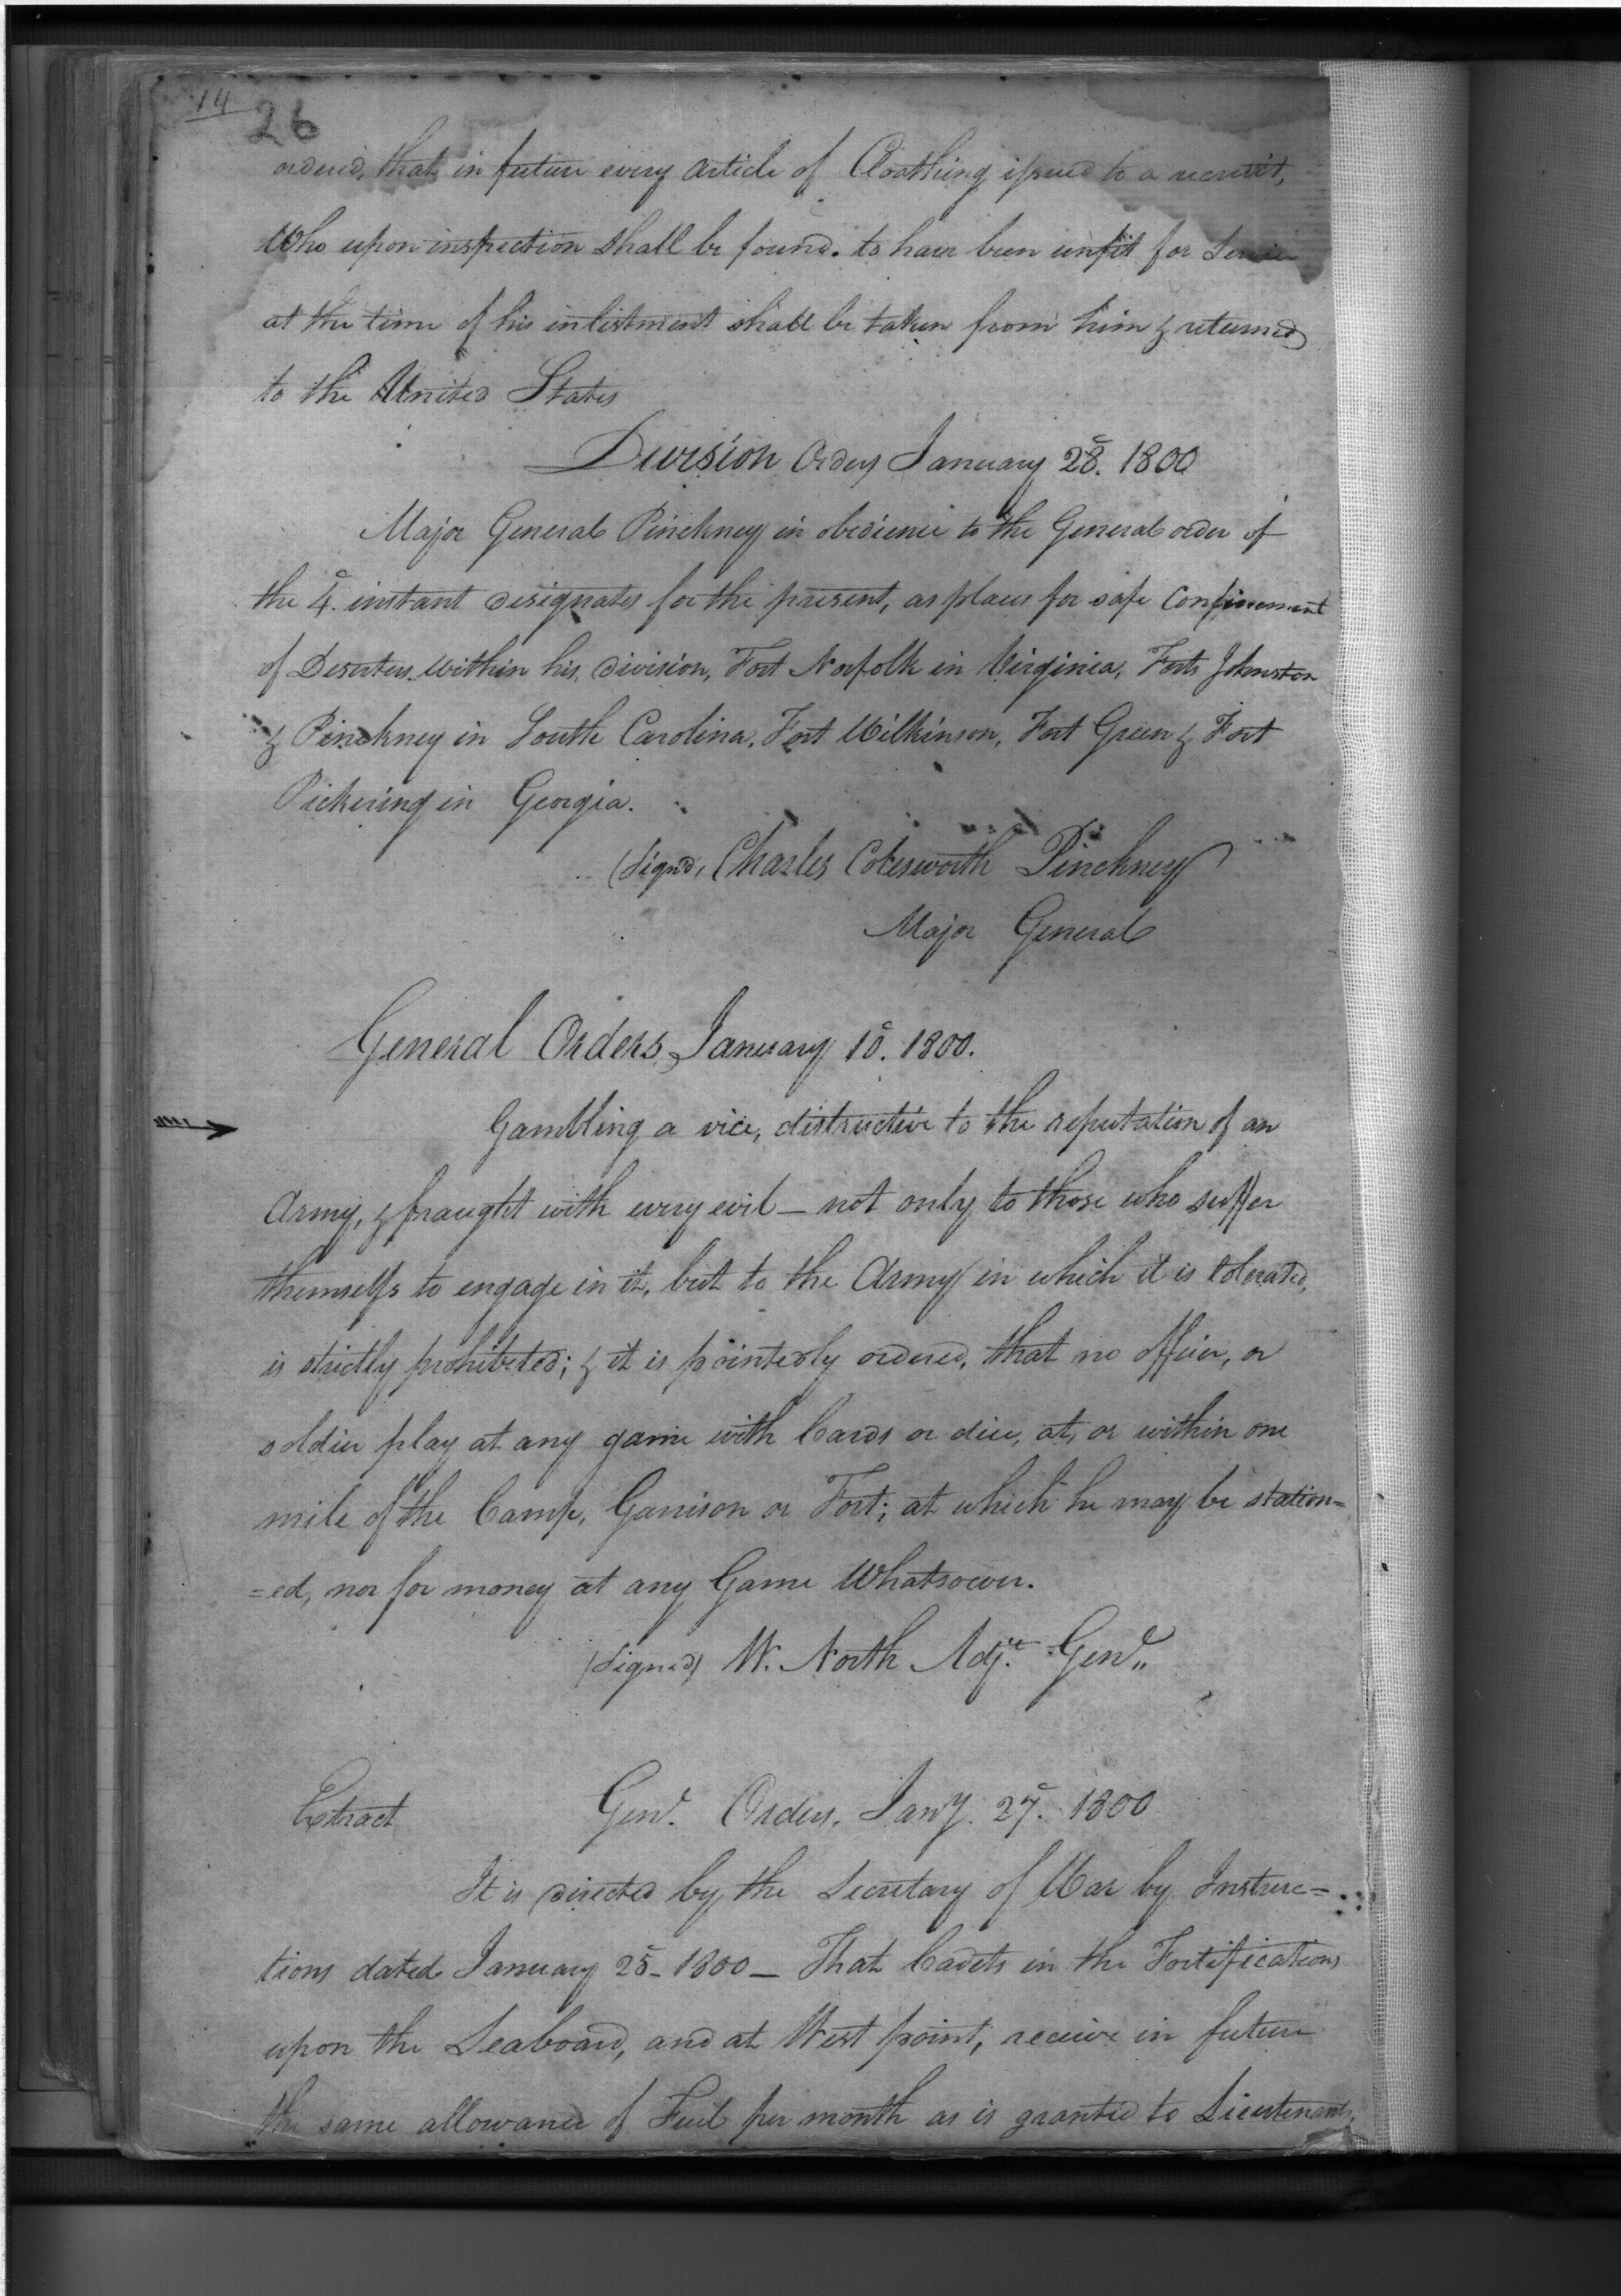 14
26
ordered, that in future every article of Cloathing issued to a recruit,
Who upon inspection shall be found. to have been unfit for Service
at the time of his inlistment shall be taken from him & returned
to the United States
Division Orders January 28. 1800
Major General Pinckney in obedience to the General order of
the 4. instant designates for the present, as places for safe Confinement
of Deserters within his division, Fort Norfolk in Virginia, Forts Johnston
& Pinckney in South Carolina, Fort Wilkinson, Fort Green & Fort
Pickering in Georgia.
(Signd, Charles Cotesworth Pinckney
Major General
General Orders, January 10. 1800.
Gambling a vice, distructive to the reputation of an
Army, & fraught with every evil — not only to those who suffer
themselfs to engage in it, but to the Army in which it is tolerated,
is strictly prohibited; & it is pointedly ordered, that no officer, or
soldier play at any game with Cards or dice, at, or within one
mile of the Camp, Garrison or Fort; at which he may be station=
=ed, nor for money at any Game Whatsoever.
(Signed) W. North Adjt. Genl.,
Extract Genl. Orders, Jany. 27. 1800
It is directed by the Secretary of War by Instruc=
tions dated January 25 - 1800 — That Cadets in the Fortifications
upon the Seaboard, and at West point, receive in future
the same allowance of Fuel per month as is granted to Lieutenants,